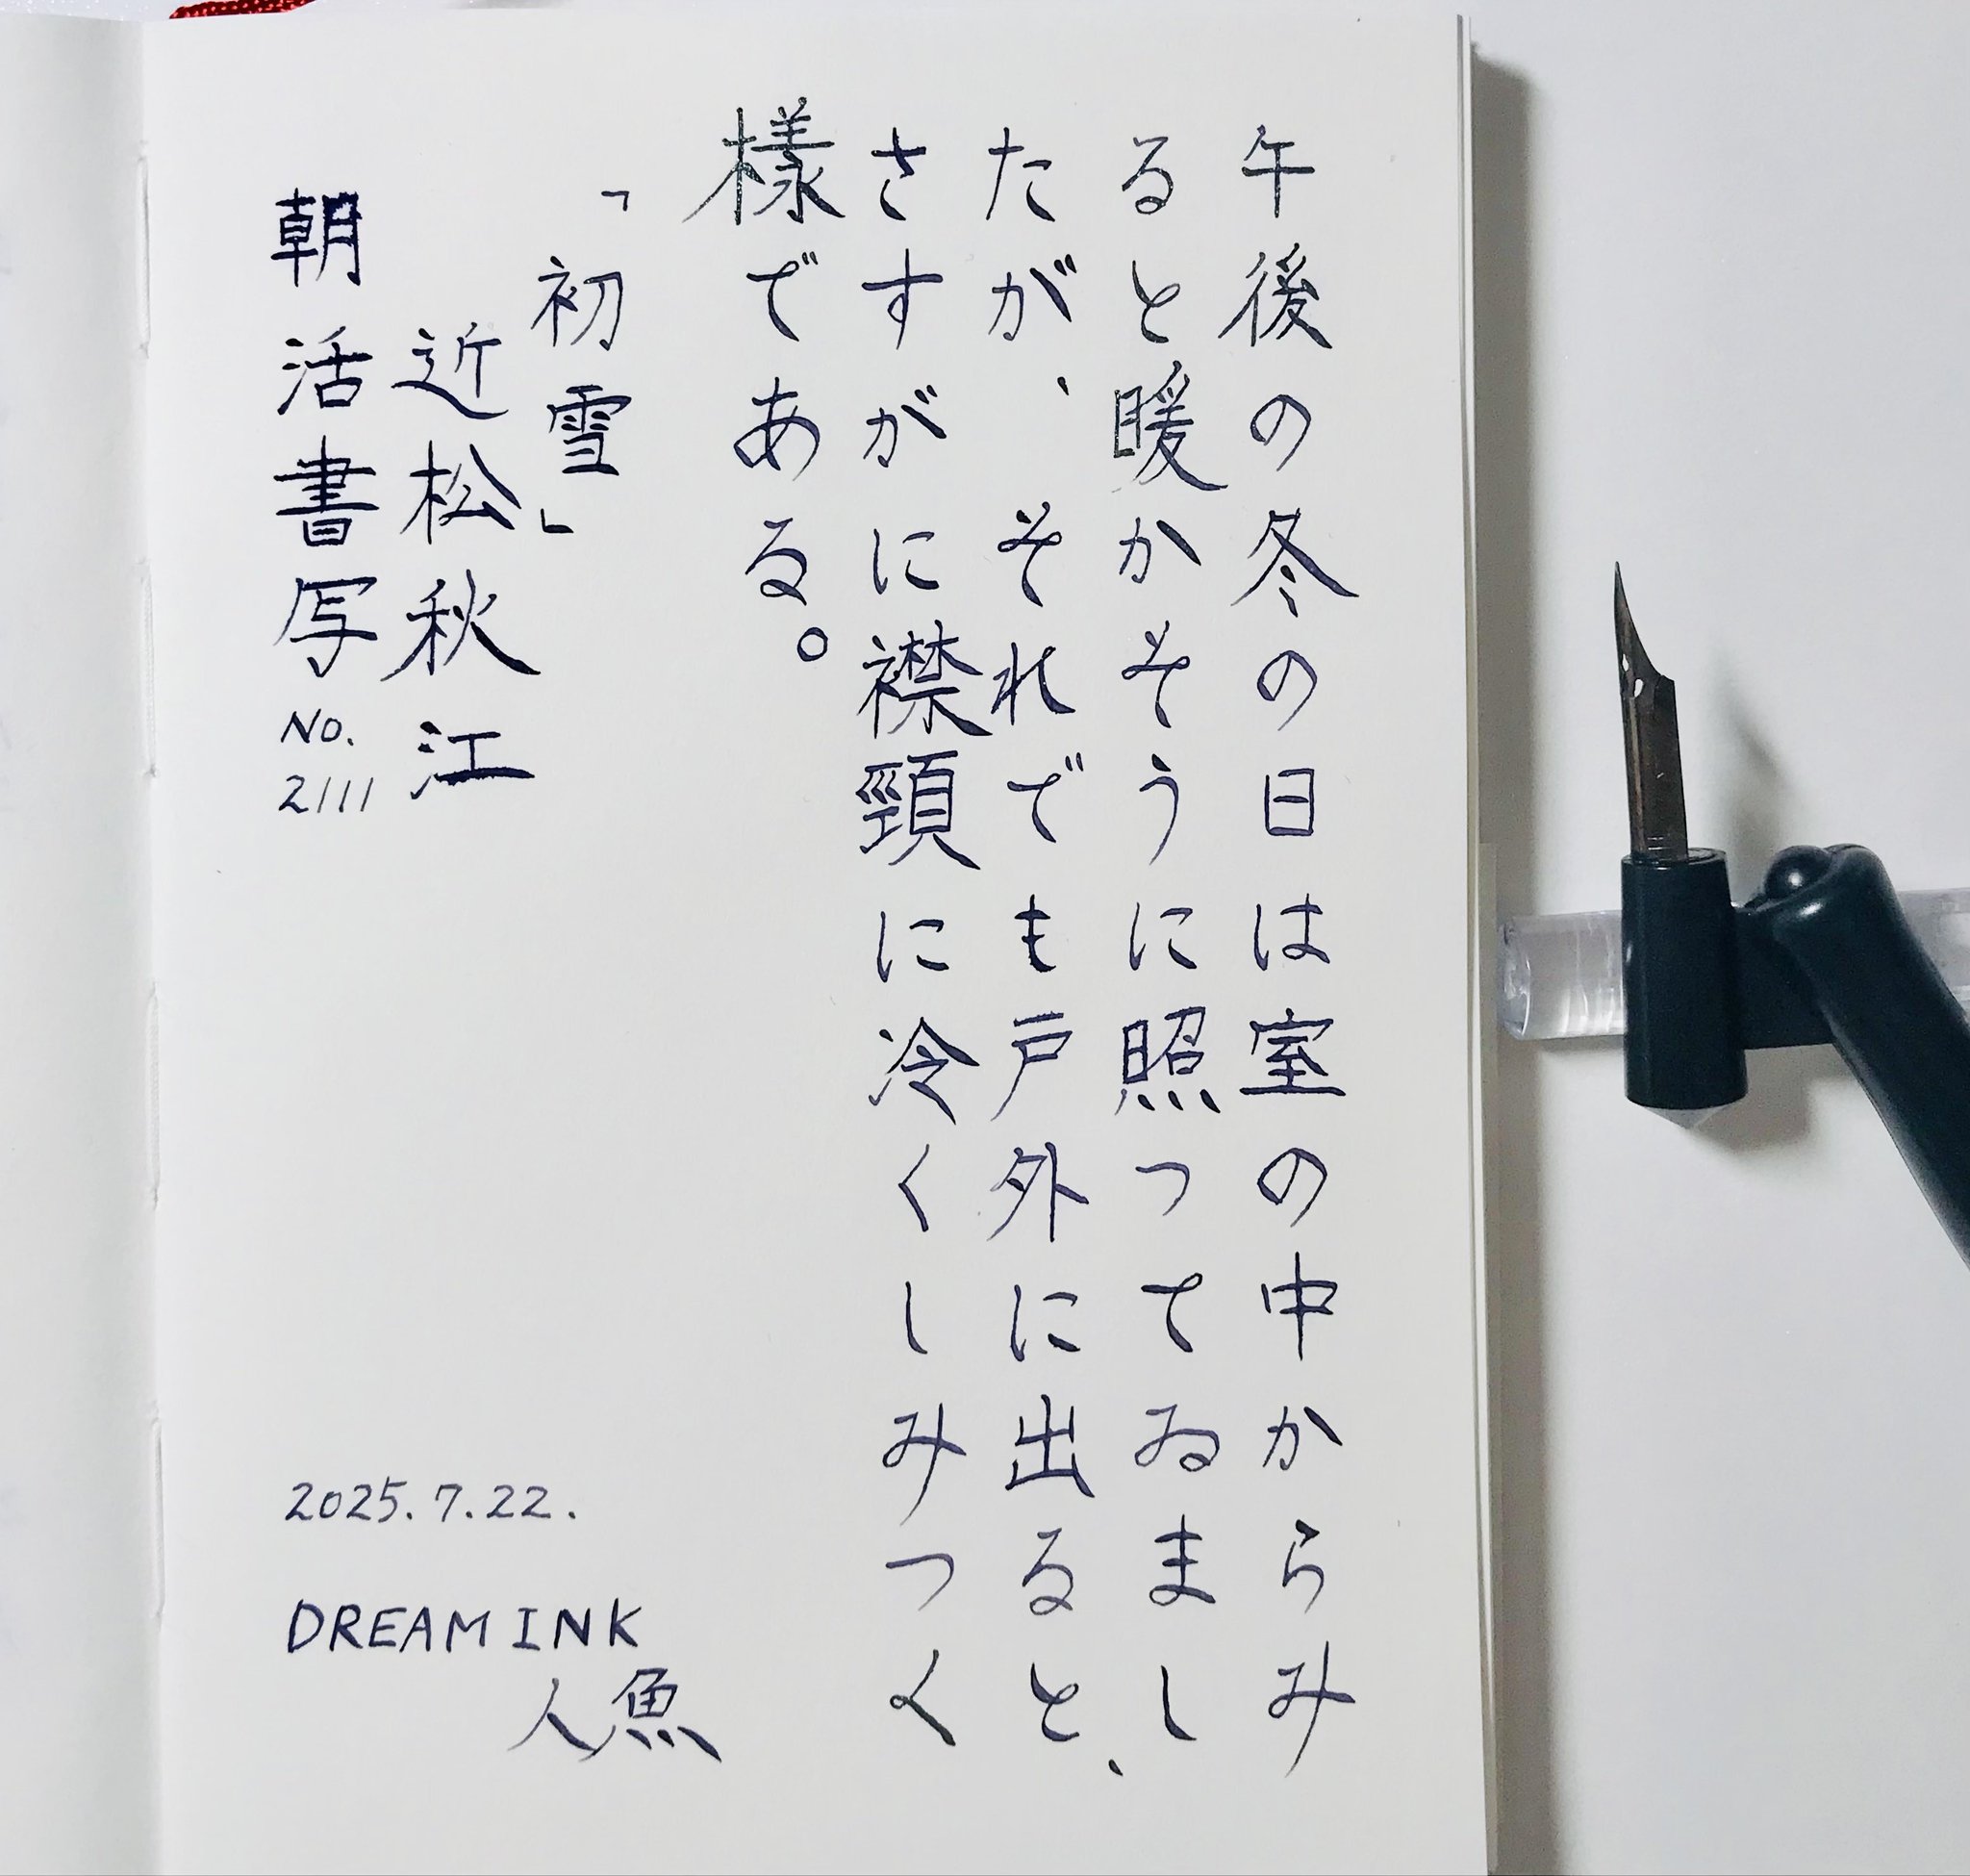 午後の冬の日は室の中からみ
ると暖かそうに照つてゐまし
たが、それでも戸外に出ると、
さすがに襟頸に冷くしみつく
様である。
「初雪」
近松秋江
朝活書写
No.
2111
2025.7.22.
DREAM INK
人魚